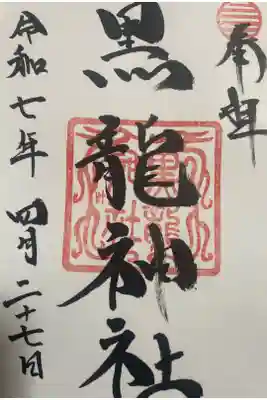 奉拝
黒龍神社
令和七年 四月二十七日